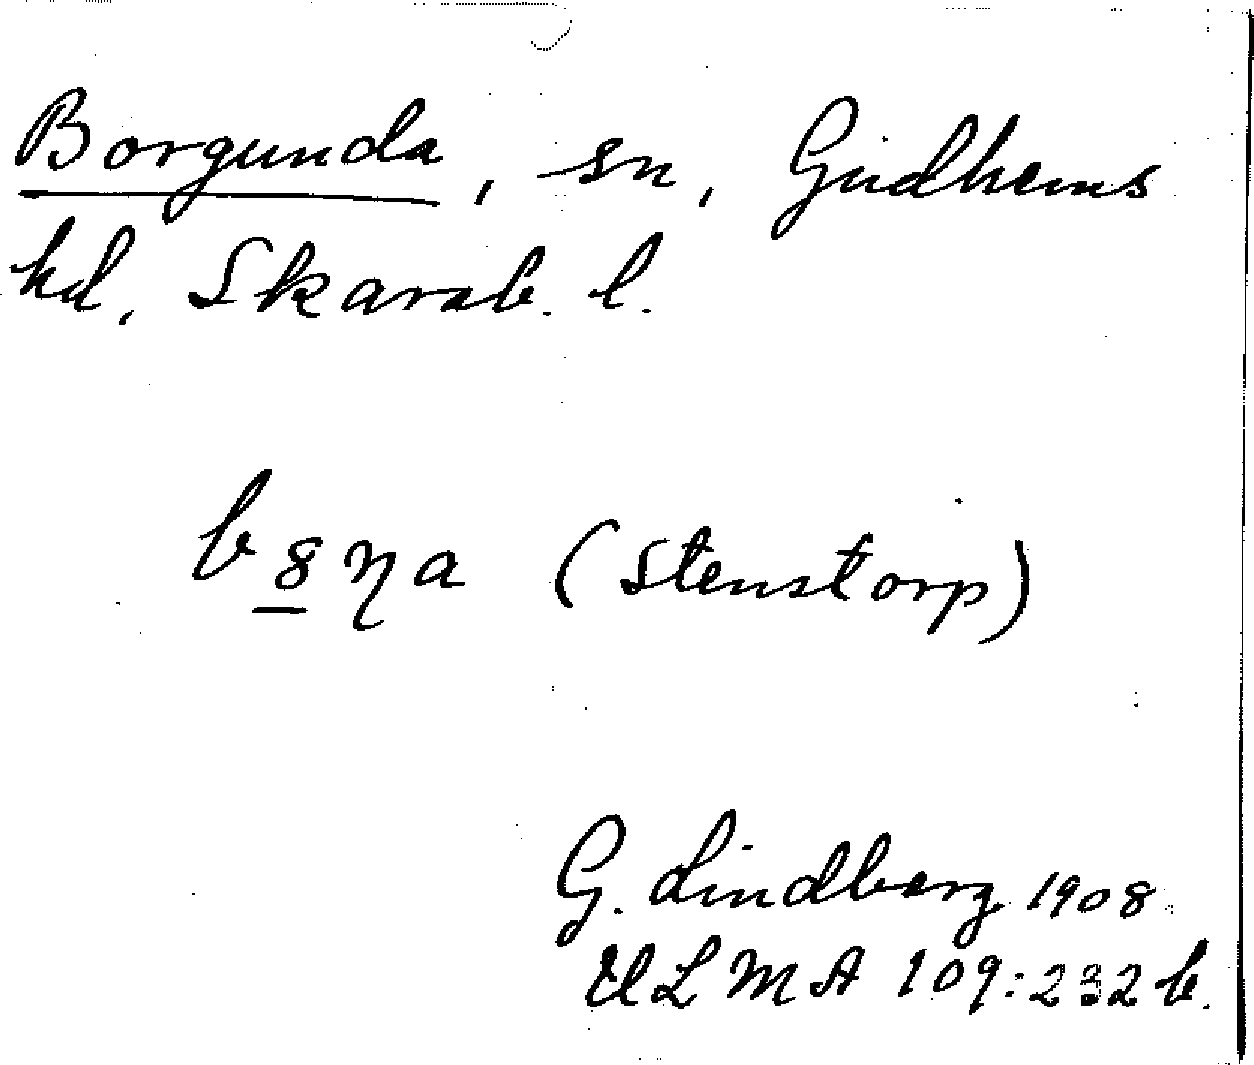 Borgunda, sn, Gudhems
hd, Skarab. l.
b8ŋa (Stenstorp)
G. Lindberg 1908
ULMA 109:232 b.